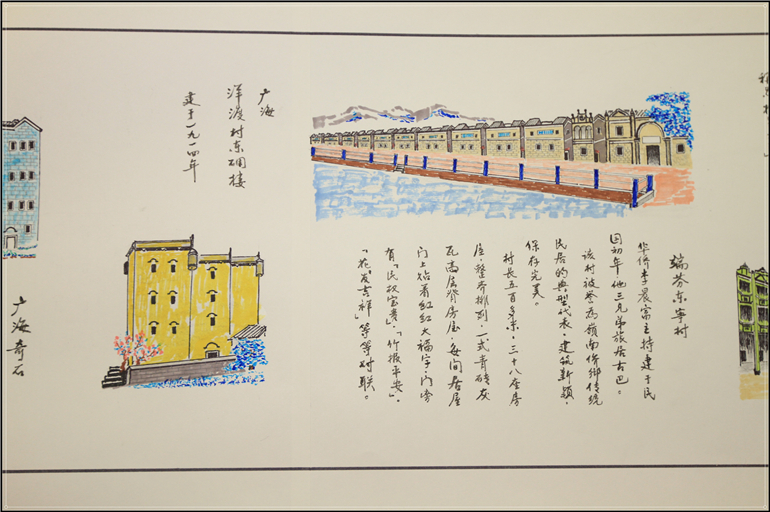 端芬东宁村
华侨李晨富主持建于民
国初年他三兄弟旅居古巴。
该村被誉为嶺南侨乡传统
民居的典型代表,建筑新颖,
保存完美。
村长五百多米,三十八座房
屋,整齐排列,一式青砖灰
瓦高层背房屋,每间居屋
门上贴着红红大福字,门旁
有“”、“竹报平安”、
“花发吉祥”等等对联。
广海
洋渡村东碉楼
建于一九一四年
广海奇石